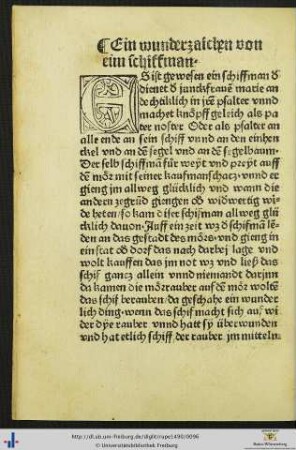 ¶ Ein wunderzaichen von
eim schiffman.
ES ist gewesen ein schiffman d̕
dienet d̕ junckfrauẽ marie an
dechtiklich in jrẽ psalter vnnd
machet knöpff geleich als pa
ter noster Oder als psalter an
alle ende an sein schiff vnnd an den einhen
ckel vnd an dẽ segel vnd an dẽ segelbaum.
Der selb schifmã für weyt vnd preyt auff
dẽ mör mit seiner kaufmanschacz vnnd er
gieng jm allweg glücklich vnd wann die
andern gegrüd giengen ob widwertig wi
de heten/so kam diser schifman allweg glü
cklich dauon. Auff ein zeit wz d̕ schifmã lẽ
den an des gestadt des mörs vnd gieng in
ein stat ob dorf das nach darbey lage vnd
wolt kauffen das jm not wz vnd ließ das
schif gancz allein vnnd niemandt darjnn
da kamen die mörrauber auf dẽ mör woltẽ
das schif berauben/da geschahe ein wunder
lich ding. wenn das schif macht sich auf wi
der dye rauber vnnd hatt sy überwunden
vnd hat etlich schiff der rauber jm mitteln
http://dl.ub.uni-freiburg.de/diglit/rupe1490/0096
Universitätsbibliothek Freiburg